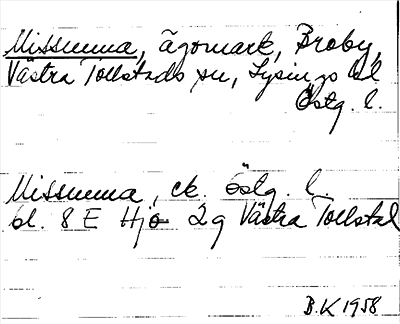 Missunna, ägomark, Broby,
Västra Tollstads sn, Lysings hd
Östg. l.
Missunna, ek. Östg. l.
bl. 8 E Hjo 2g Västra Tollstad
B.K 1958